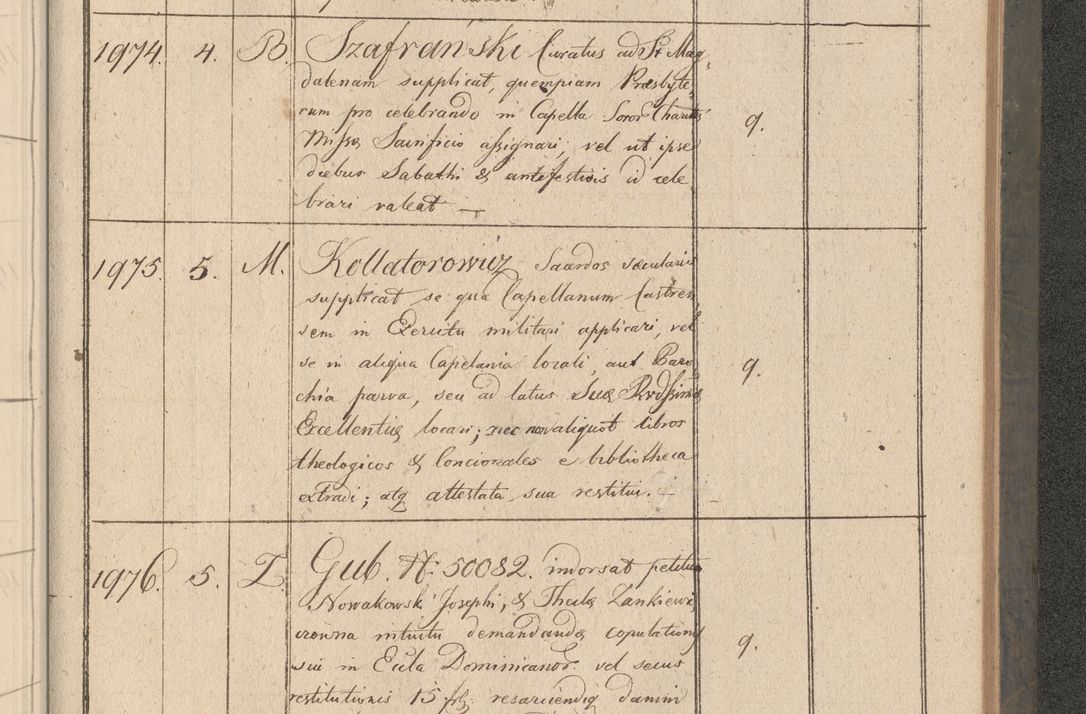 1974. 4. B. Szafrański Curatus ad St Mag
dalenam supplicat, quempiam Præsbyte
rum pro celebrando in Capella Soror Charitts
Missæ Sacrificio assignari, vel ut ipse
diebus Sabathi & antefestivis id cele
brari valeat — 9.
1975. 5. M. Kollatorowicz Sacerdos sæcularis
supplicat se qua Capellanum Castren
sem in Exercitu militari applicari, vel
se in aliqua Capelania locali, aut Paro
chia parva, seu ad latus Suæ Rvdssimæ
Excellentiæ locari; nec non aliquot libros
theologicos & Concionales e bibliotheca
extradi; atq attestata sua restitui. — 9.
1976. 5. T. Gub. N: 50082. indorsat petitum
Nowakowski Josephi, & Theclæ Zankiewi
czowna intuitu demandandæ copulationis
sui in Eccla Dominicanor. vel secus
restitutionis 15 fl: resarciendiq damni 9.